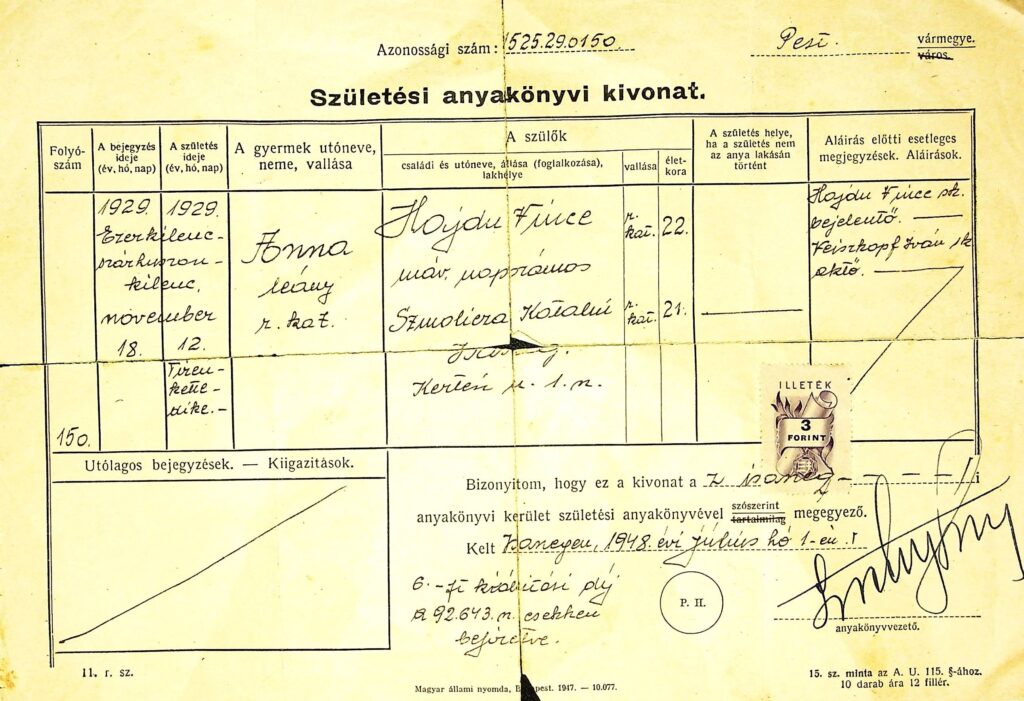 Azonossági szám: 1525.29.0150.
Pest. vármegye.
város.
Születési anyakönyvi kivonat.
Folyó-
szám
A bejegyzés
ideje
(év, hó, nap)
A születés
ideje
(év, hó, nap)
A gyermek utóneve,
neme, vallása
A szülők
családi és utóneve, állása (foglalkozása),
lakhelye
vallása
élet-
kora
A születés helye,
ha a születés nem
az anya lakásán
történt
Aláírás előtti esetleges
megjegyzések. Aláírások.
150.
1929.
Ezerkilenc-
százhuszon-
kilenc,
november
18.
1929.
12.
Tizen-
kette-
dike.-
Anna
leány
r. kat.
Hajdu Vince
máv. napszámos
r.
kat.
22.
Katalin
r.
kat.
21.
Kertész u. 1. n.
Hajdu Vince sk.
bejelentő.
Iván sk
ILLETÉK
3
FORINT
Utólagos bejegyzések. — Kiigazitások.
Bizonyitom, hogy ez a kivonat a z isaszeg - - - i
anyakönyvi kerület születési anyakönyvével szószerint megegyező.
tartalmilag
Kelt 1948. évi július hó 1-én.
6.-ft kiállitási díj
a 92.643. n. csekken
befizetve.
P. H.
anyakönyvvezető.
11. r. sz.
Magyar állami nyomda, Budapest. 1947. — 10.077.
15. sz. minta az A. U. 115. §-ához.
10 darab ára 12 fillér.